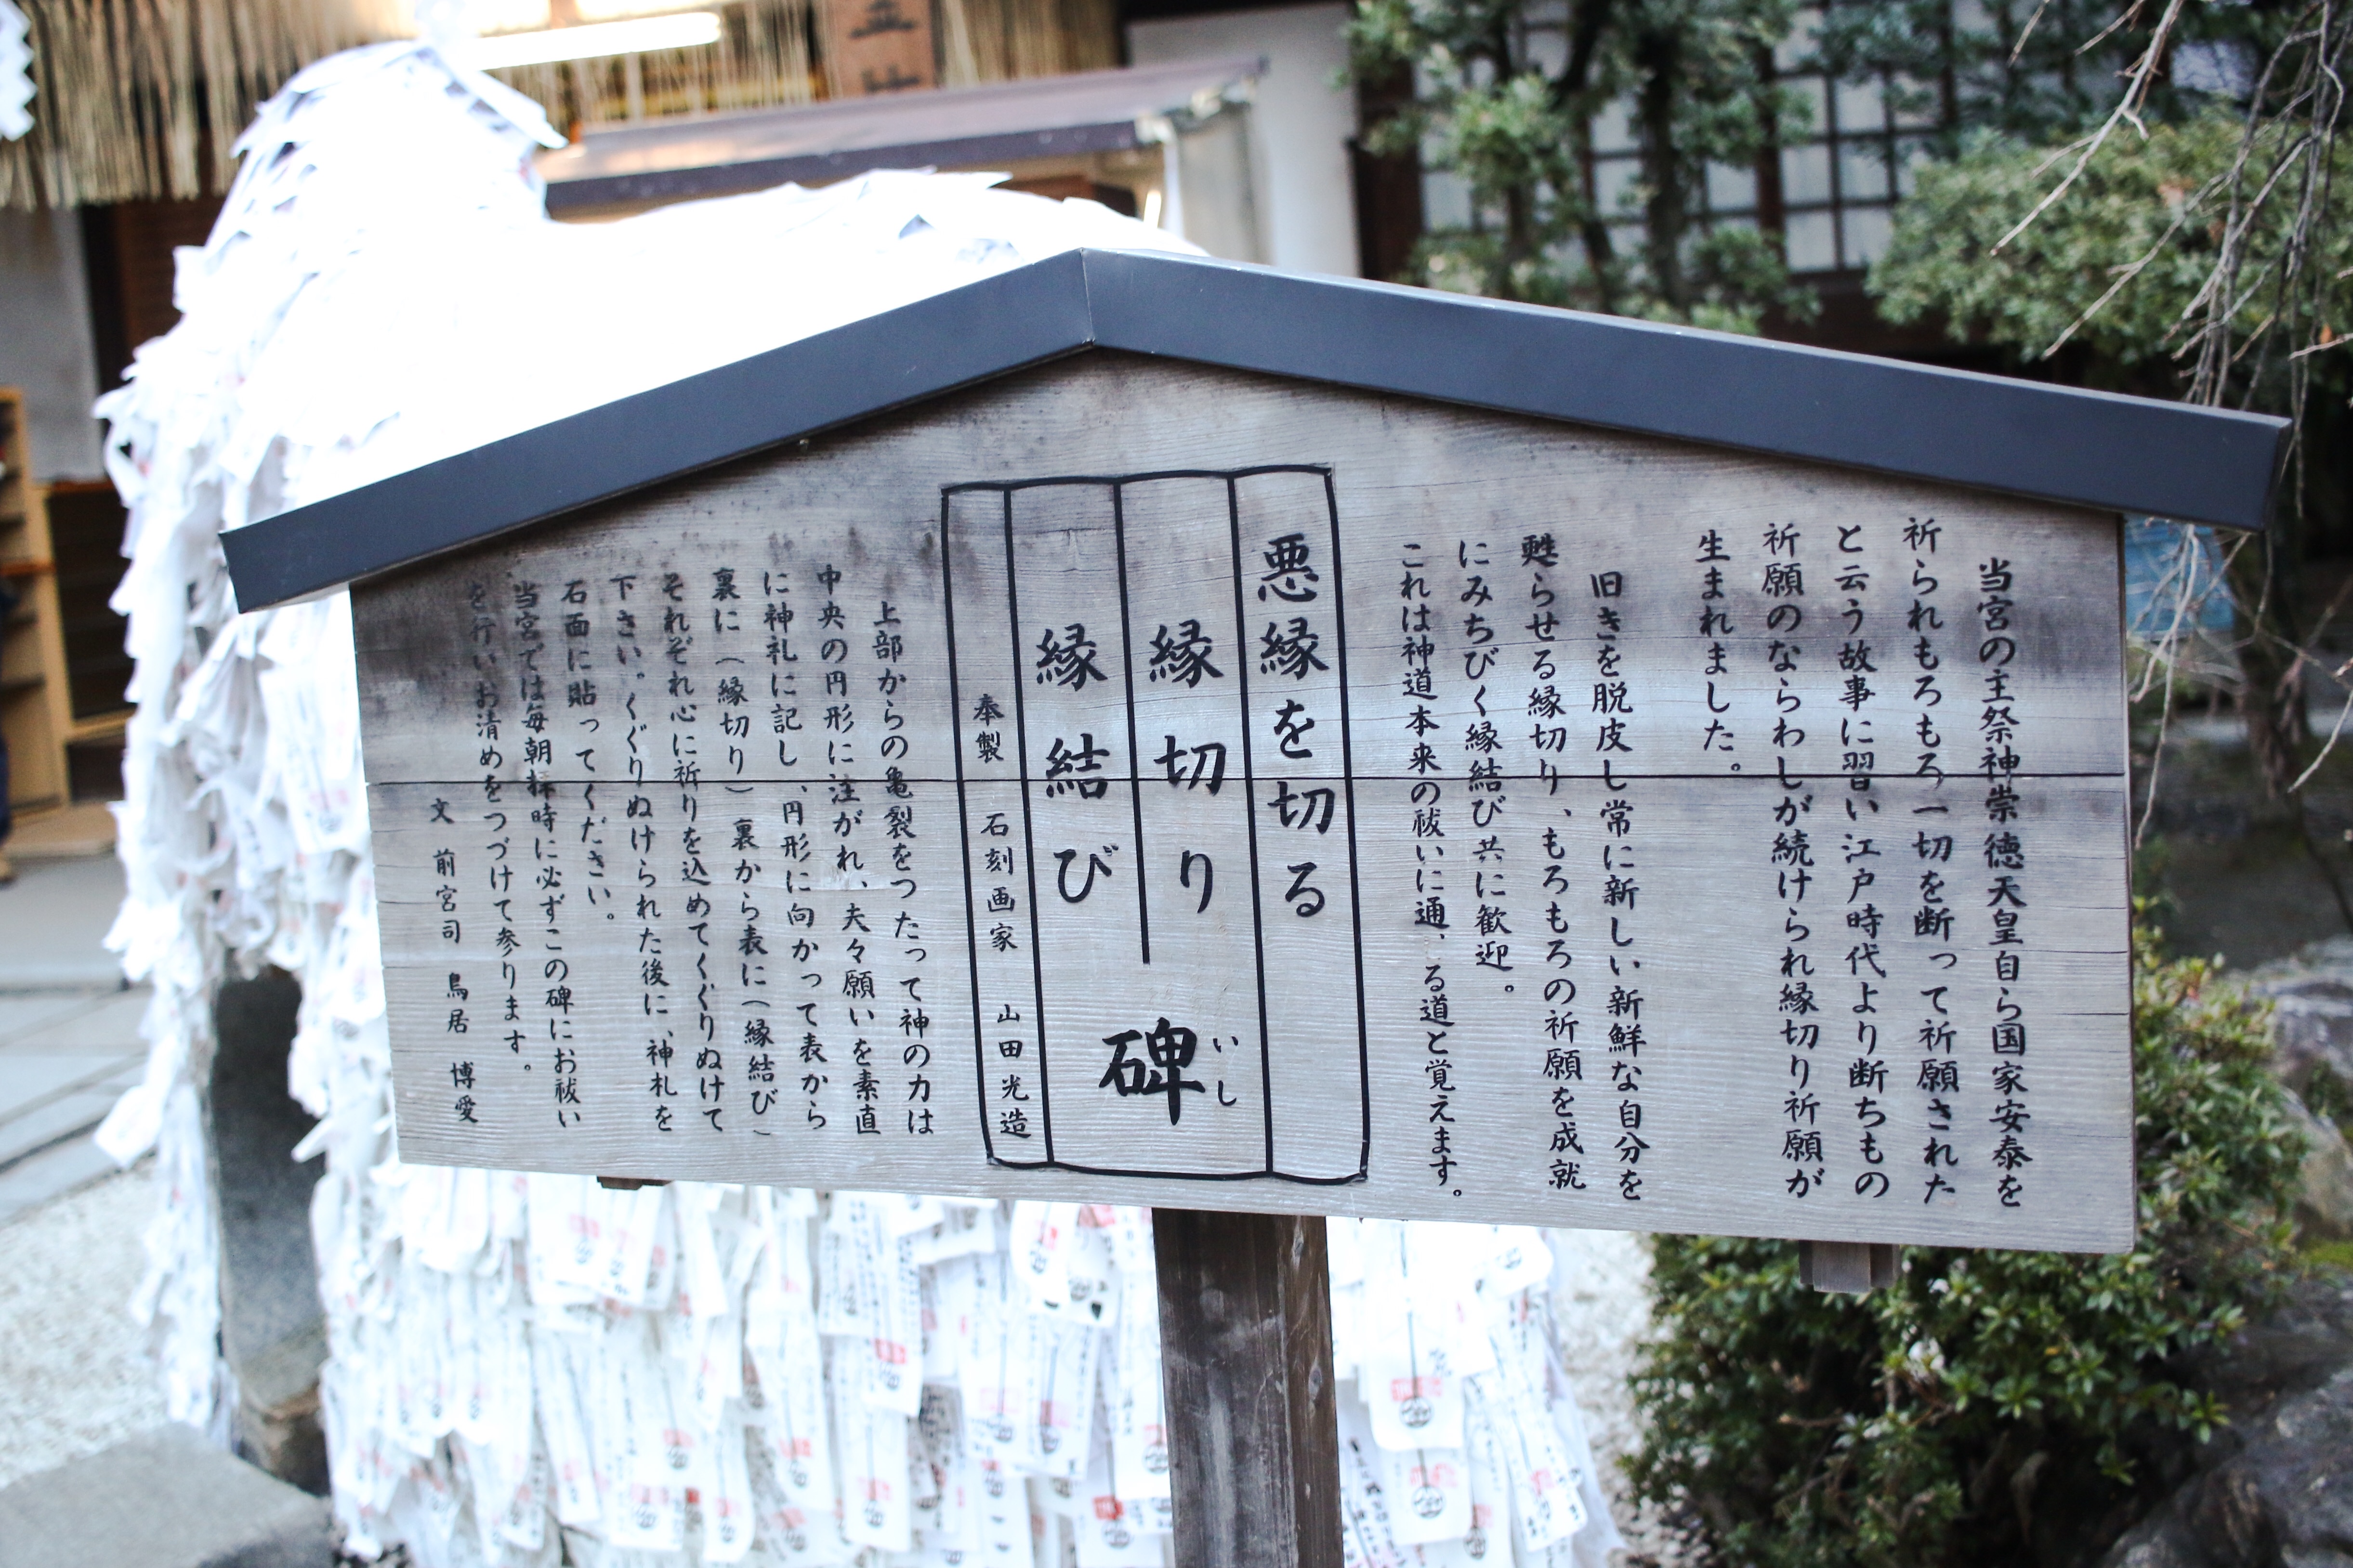 当宮の主祭神崇徳天皇自ら国家安泰を
祈られもろもろ一切を断って祈願された
と云う故事に習い江戸時代より断ちもの
祈願のならわしが続けられ縁切り祈願が
生まれました。
旧きを脱皮し常に新しい新鮮な自分を
甦らせる縁切り、もろもろの祈願を成就
にみちびく縁結び共に歓迎。
これは神道本来の祓いに通.る道と覚えます。
悪縁を切る
縁切り
縁結び
碑
いし
奉製 石刻画家 山田光造
上部からの亀裂をつたって神の力は
中央の円形に注がれ、夫々願いを素直
に神礼に記し、円形に向かって表から
裏に(縁切り)裏から表に(縁結び)
それぞれ心に祈りを込めてくぐりぬけて
下さい。くぐりぬけられた後に、神札を
石面に貼ってください。
当宮では毎朝拝時に必ずこの碑にお祓い
を行いお清めをつづけて参ります。
文 前宮司 鳥居 博愛